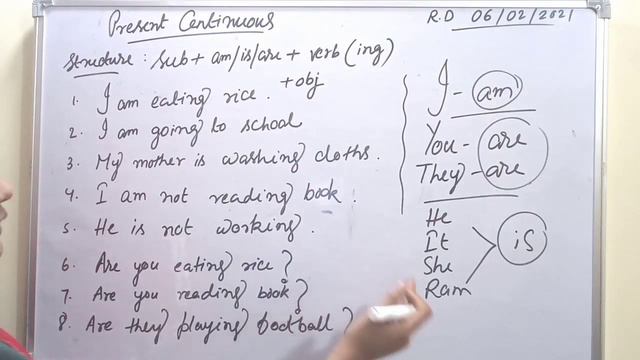 Present Continuous
R.D 06/02/2021
Structure : Sub + am/is/are + verb (ing)
+ obj
1. I am eating rice .
2. I am going to school
3. My mother is washing cloths .
4. I am not reading book .
5. He is not working .
6. Are you eating rice ?
7. Are you reading book ?
8. Are they playing football ?
I - am
You - are
They - are
He
It
She
Ram
is